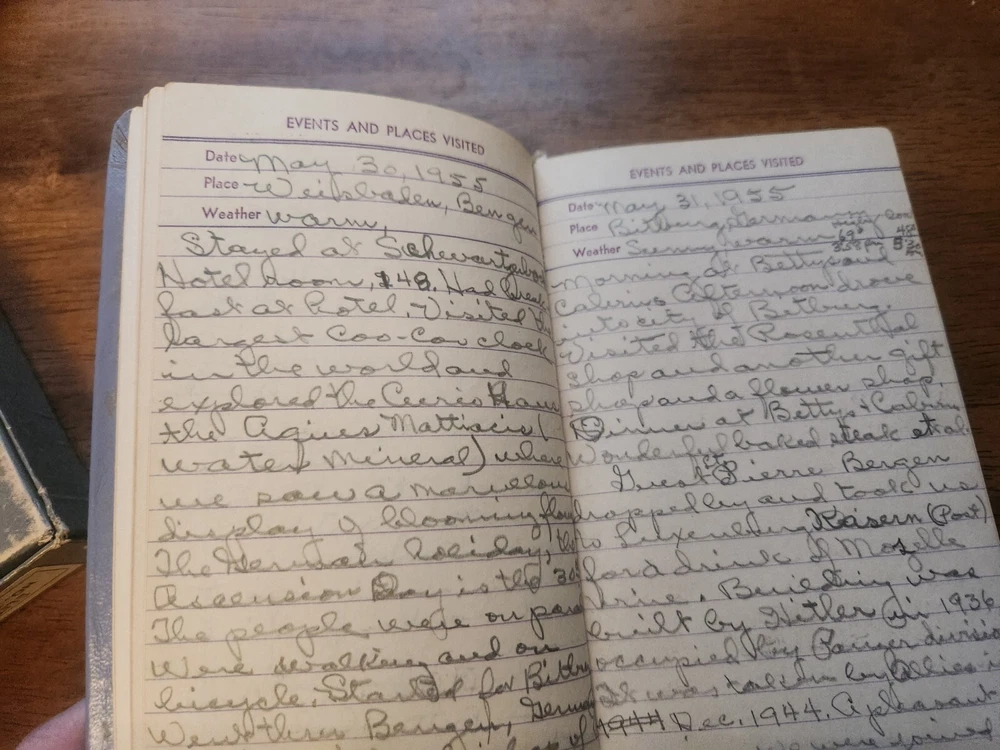 EVENTS AND PLACES VISITED
Date May 30, 1955
Place Weisbaden, Bengen
Weather Warm,
Stayed at
Hotel room, 148. Had break
fast at hotel. Visited the
largest Coo-Coo clock
in the world and
explored the
the Aques Mattiacis (
water mineral) where
we saw a marvelous
display of blooming flow
The German holiday, the
Ascension Day is the 30th
The people were on para
Were walking and on
bicycle. Started for Bitbu
Went thru Bengen, Germ
EVENTS AND PLACES VISITED
Date May 31, 1955
Place Bitburg, Germany
Weather Sunny, warm 69°
Morning at Bettys and
Calvins Afternoon drove
into city of Bitburg.
Visited the Rosenthal
shop and another gift
shop and a flower shop.
Dinner at Bettys + Calvins
Wonderful baked steak et al.
Pierre Bergen
dropped by and took us
to Kasern (Post)
for a drink of Moselle
Wine. Building was
built by Hitler in 1936
occupied by Panzer divisi
It was taken by Allies i
1944 Dec. 1944. A pheasant